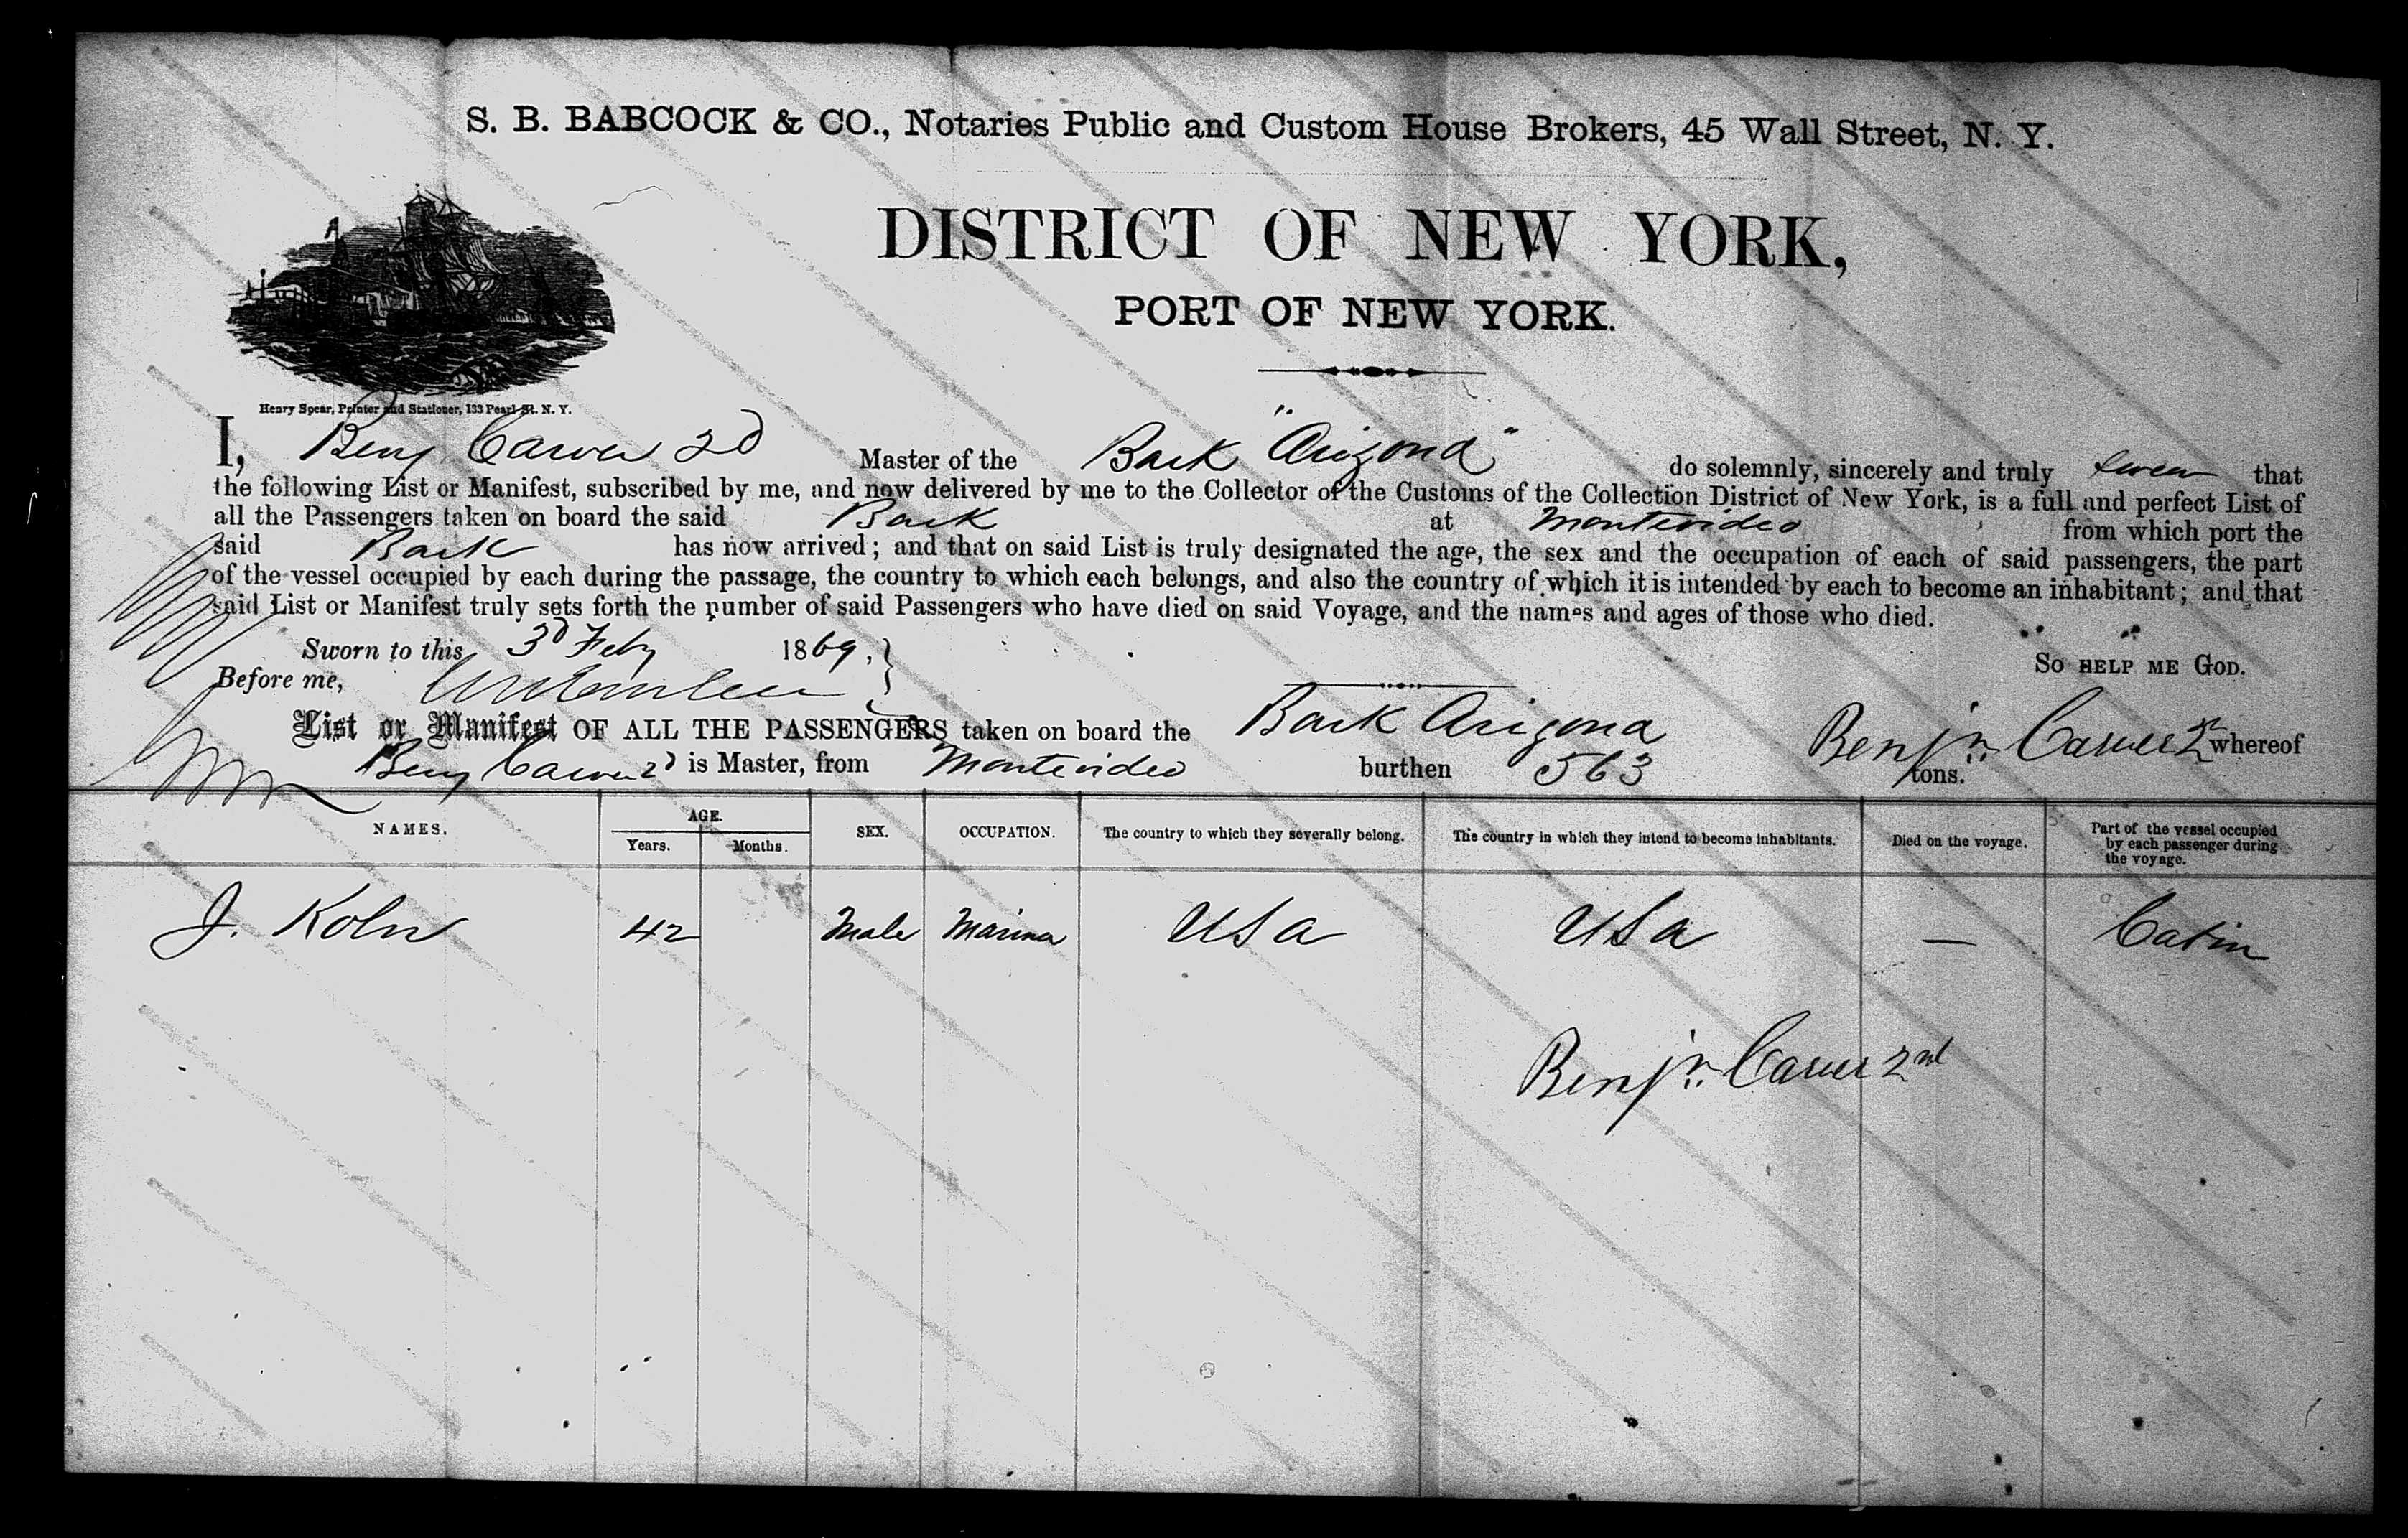 S. B. BABCOCK & CO., Notaries Public and Custom House Brokers, 45 Wall Street, N. Y.
DISTRICT OF NEW YORK,
PORT OF NEW YORK.
Henry Spear, Printer and Stationer, 133 Pearl St. N. Y.
I, Benj Carver 2d Master of the Bark "Arizona" do solemnly, sincerely and truly swear that
the following List or Manifest, subscribed by me, and now delivered by me to the Collector of the Customs of the Collection District of New York, is a full and perfect List of
all the Passengers taken on board the said Bark at Montevideo from which port the
said Bark has now arrived; and that on said List is truly designated the age, the sex and the occupation of each of said passengers, the part
of the vessel occupied by each during the passage, the country to which each belongs, and also the country of which it is intended by each to become an inhabitant; and that
said List or Manifest truly sets forth the number of said Passengers who have died on said Voyage, and the names and ages of those who died.
Sworn to this 3d Feby 1869,
So HELP ME GOD.
Before me,
Benjn. Carver 2
List or Manifest OF ALL THE PASSENGERS taken on board the Bark Arizona whereof
Benj Carver 2d is Master, from Montevideo burthen 563 tons.
NAMES. AGE. SEX. OCCUPATION. The country to which they severally belong. The country in which they intend to become inhabitants. Died on the voyage. Part of the vessel occupied by each passenger during the voyage.
Years. Months.
J. Kohn 42 Male Mariner USA USA — Cabin
Benjn. Carver 2nd